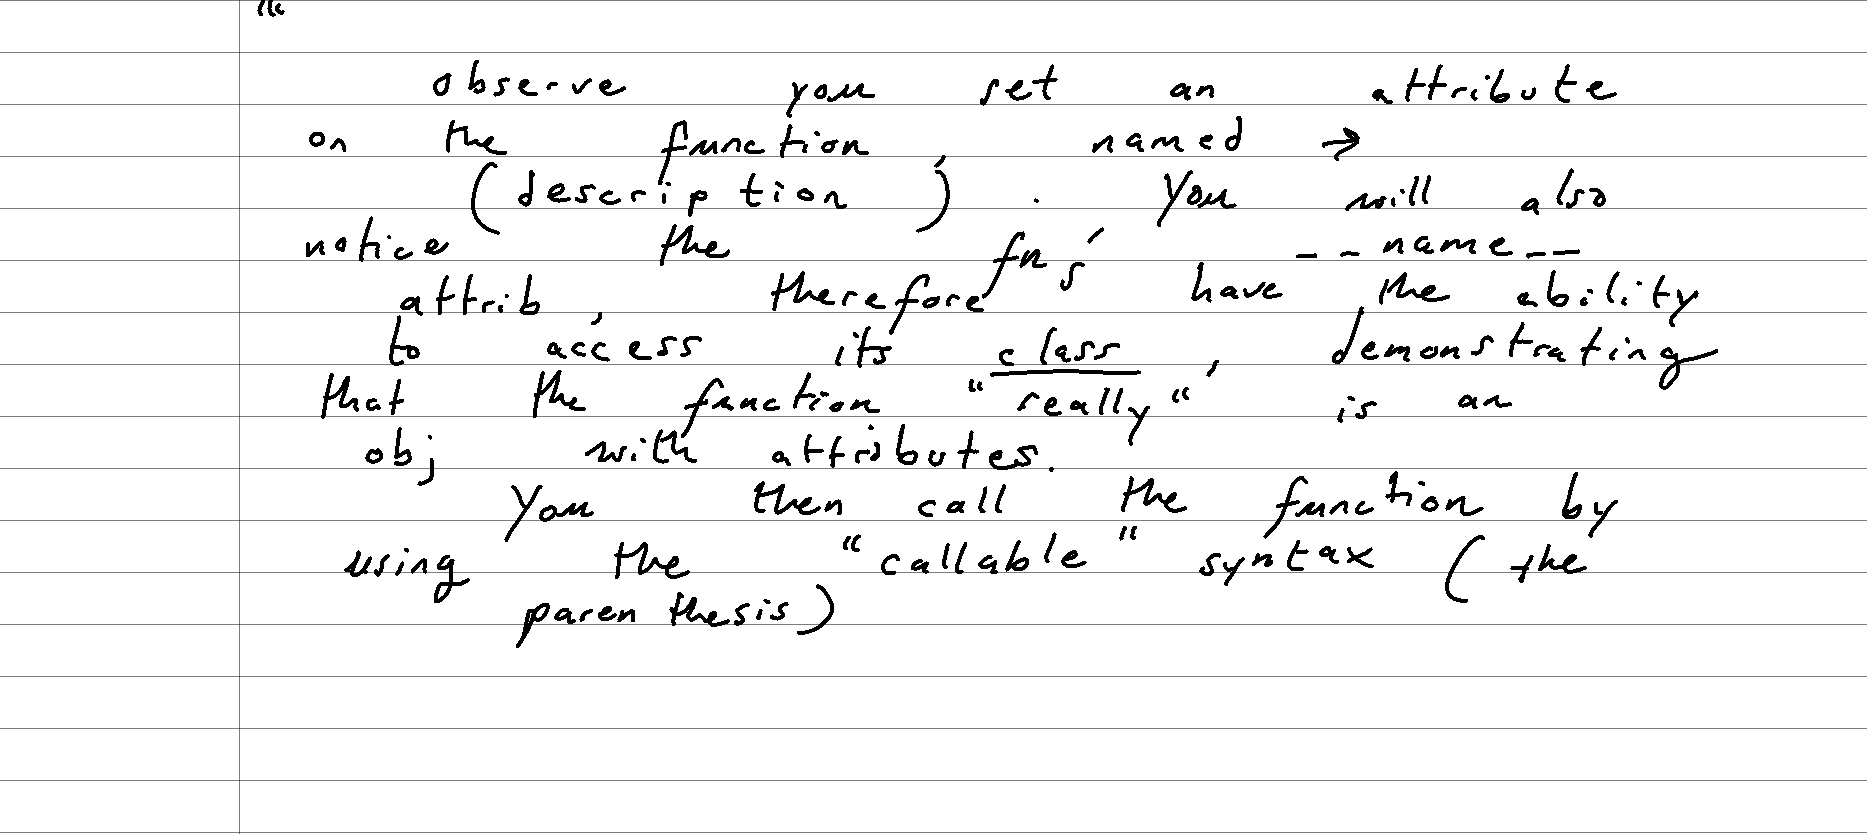 "
observe you set an attribute
on the function, named →
(description). You will also
notice the fn's __name__
attrib, therefore have the ability
to access its class, demonstrating
that the function "really" is an
obj with attributes.
You then call the function by
using the "callable" syntax (the
parenthesis)